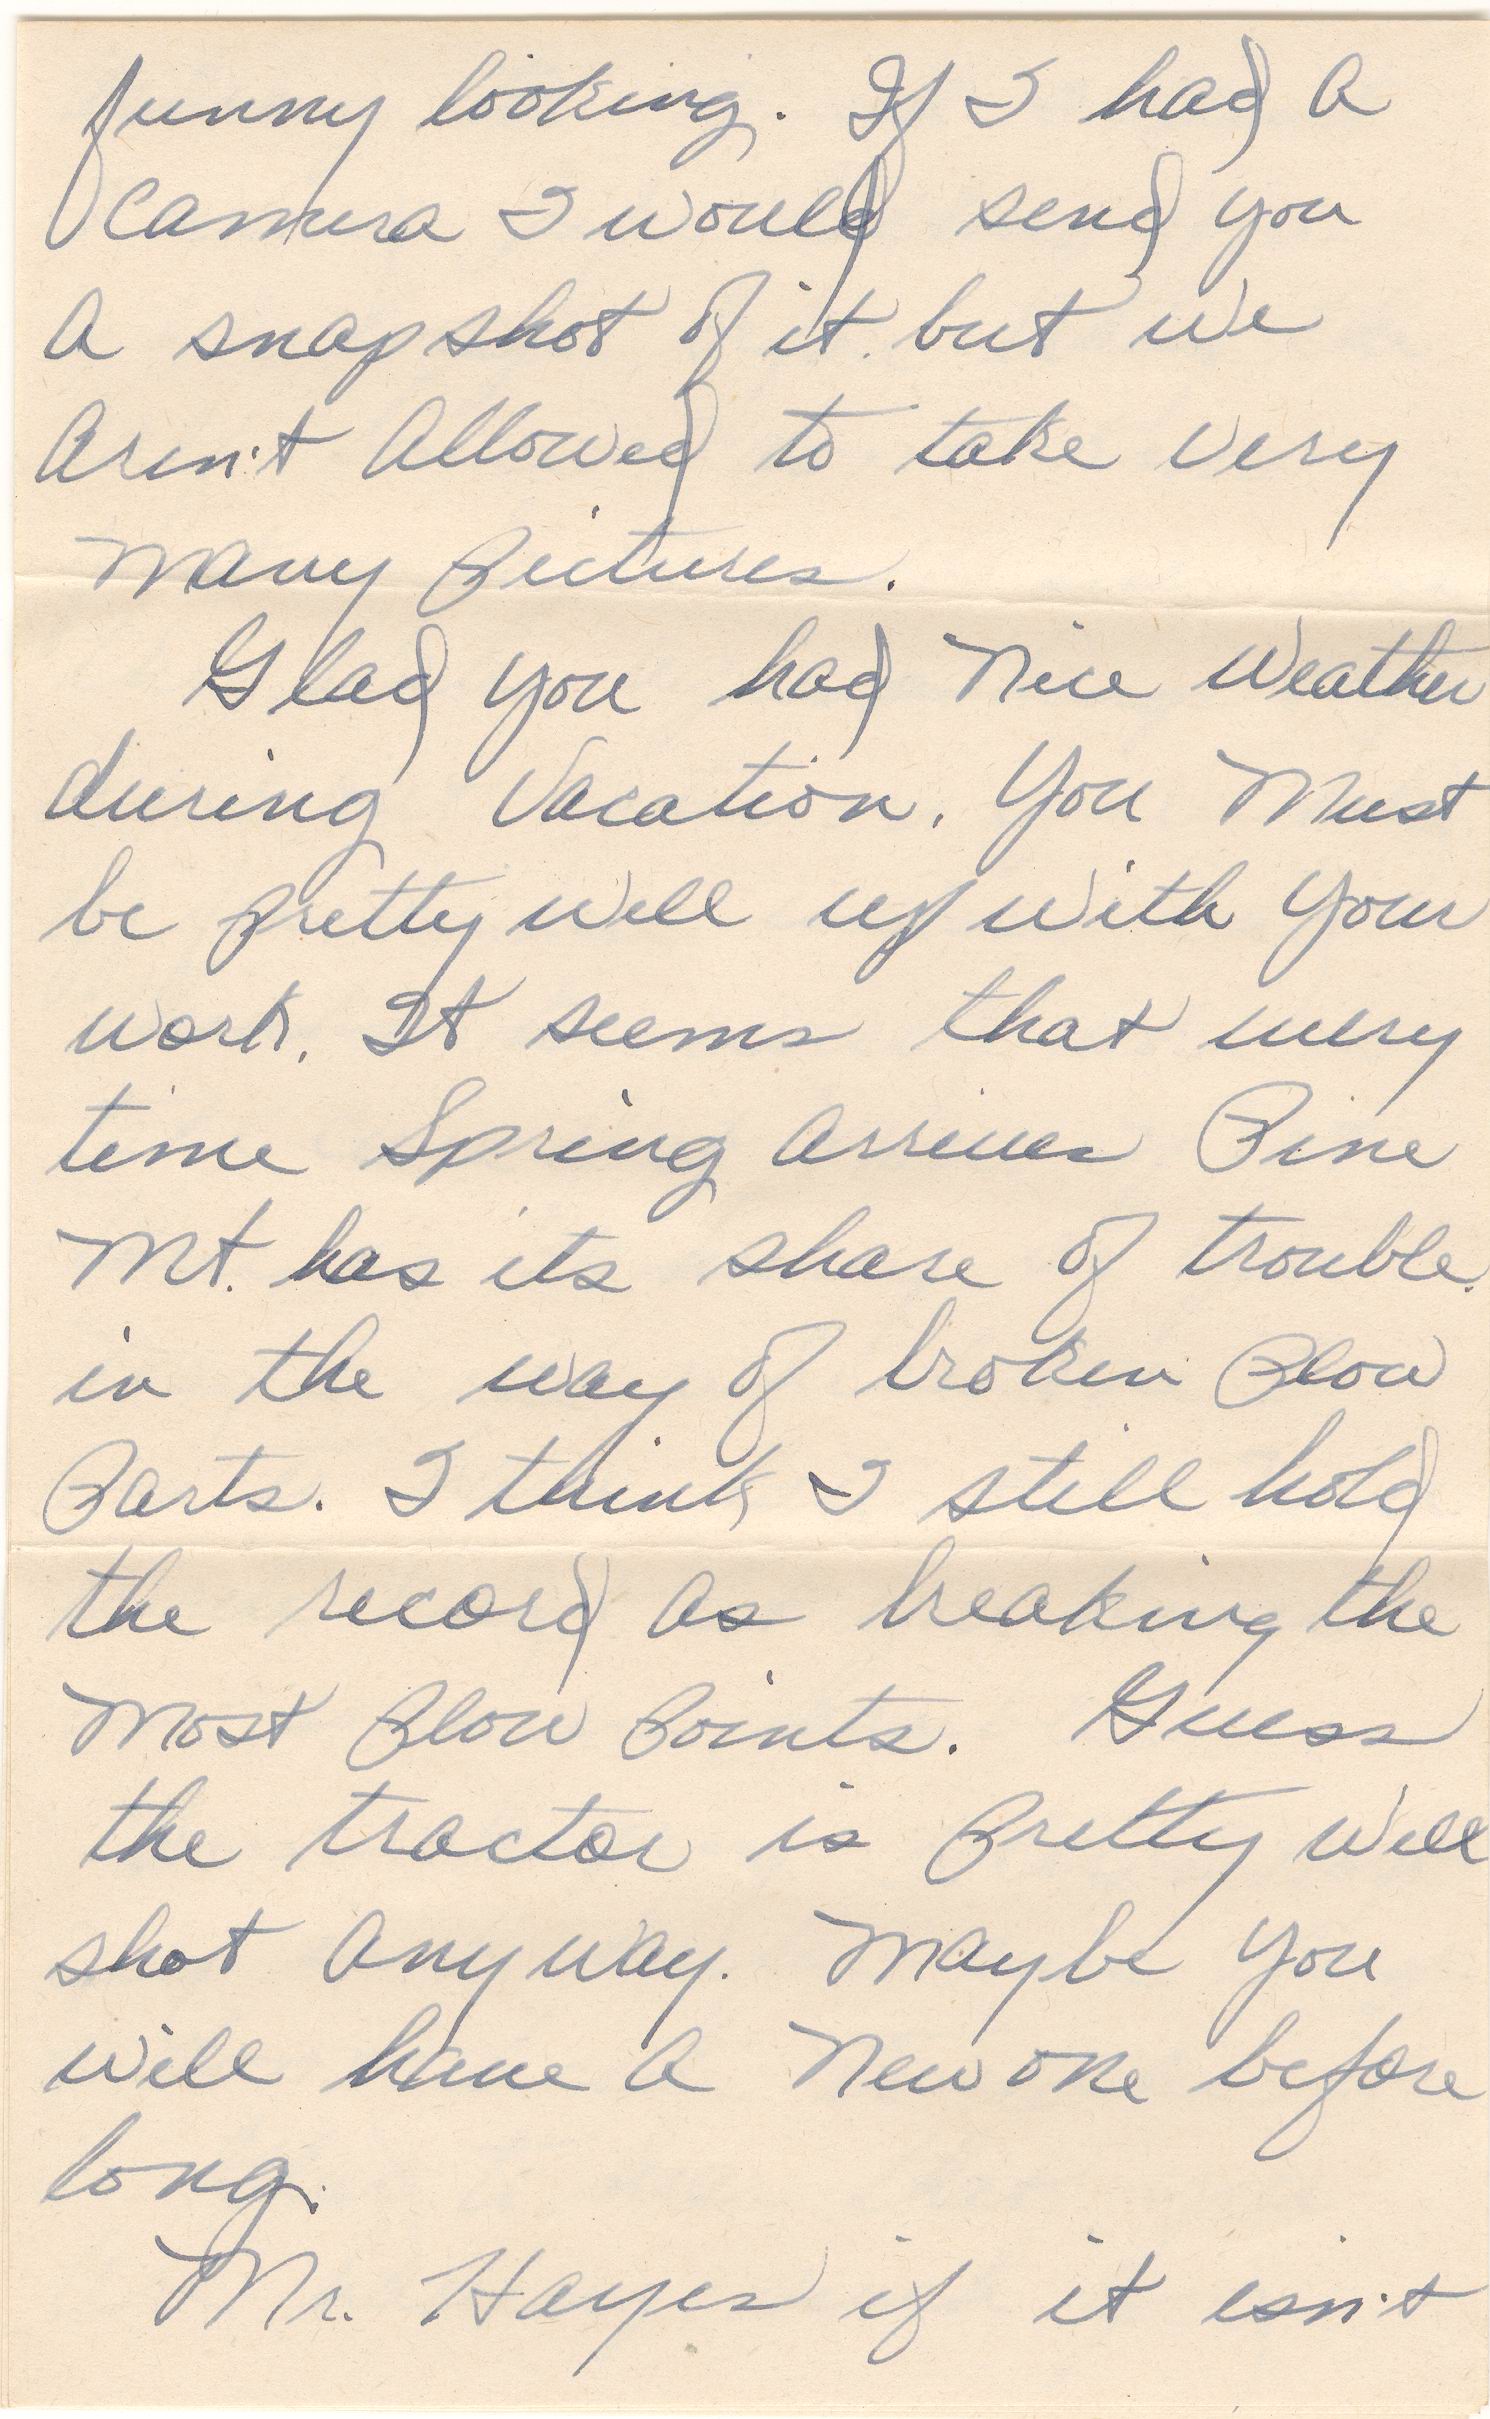 funny looking. If I had a
camera I would send you
a snapshot of it. but we
aren't allowed to take very
many pictures.
Glad you had nice weather
during vacation. You must
be pretty well up with your
work. It seems that every
time Spring arrives Pine
Mt. has its share of trouble.
in the way of broken plow
parts. I think I still hold
the record as breaking the
most plow points. Guess
the tractor is pretty well
shot anyway. Maybe you
will have a new one before
long.
Mr. Hayes if it isn't